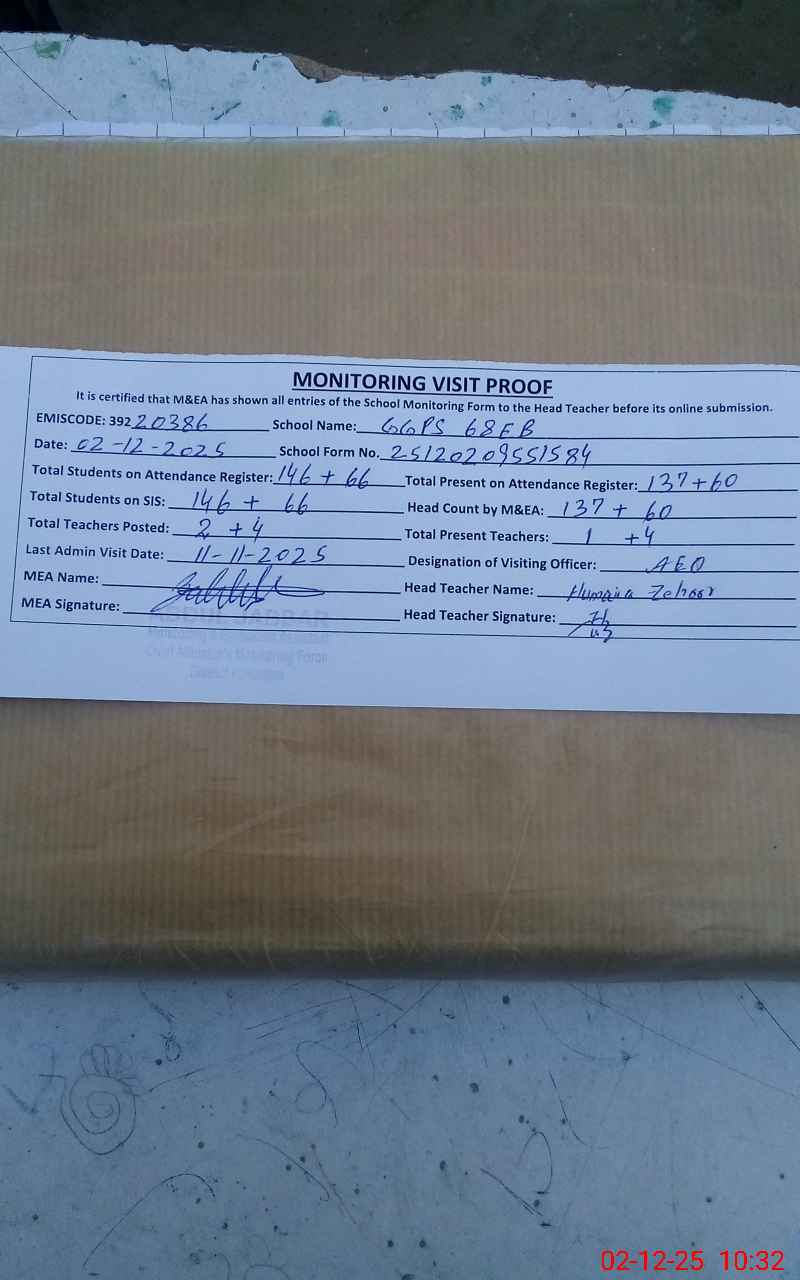 MONITORING VISIT PROOF
It is certified that M&EA has shown all entries of the School Monitoring Form to the Head Teacher before its online submission.
EMISCODE: 39220386 School Name: GGPS 68EB
Date: 02-12-2025 School Form No. 25120209551584
Total Students on Attendance Register: 146 + 66 Total Present on Attendance Register: 137+60
Total Students on SIS: 146 + 66 Head Count by M&EA: 137 + 60
Total Teachers Posted: 2 + 4 Total Present Teachers: 1 +4
Last Admin Visit Date: 11-11-2025 Designation of Visiting Officer: AEO
MEA Name: Head Teacher Name: Humaira Zehoor
MEA Signature: Head Teacher Signature:
ABDUL JABBAR
Chief Minister's Monitoring Force
02-12-25 10:32